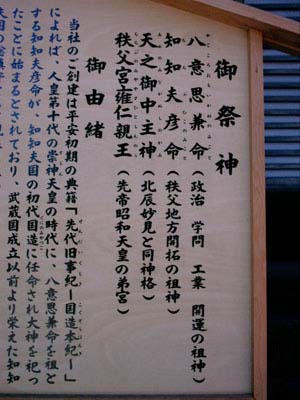 御祭神
八意思兼命(政治 学問 工業 開運の祖神)
知知夫彦命(秩父地方開拓の祖神)
天之御中主神(北辰妙見と同神格)
秩父宮雍仁親王(先帝昭和天皇の弟宮)
御由緒
当社のご創建は平安初期の典籍「先代旧事紀ー国造本紀ー」
によれば、人皇第十代の崇神天皇の時代に、八意思兼命を祖と
する知知夫彦命が、知知夫国の初代国造に任命され大神を祀っ
たことに始まるとされており、武蔵国成立以前より栄えた知知